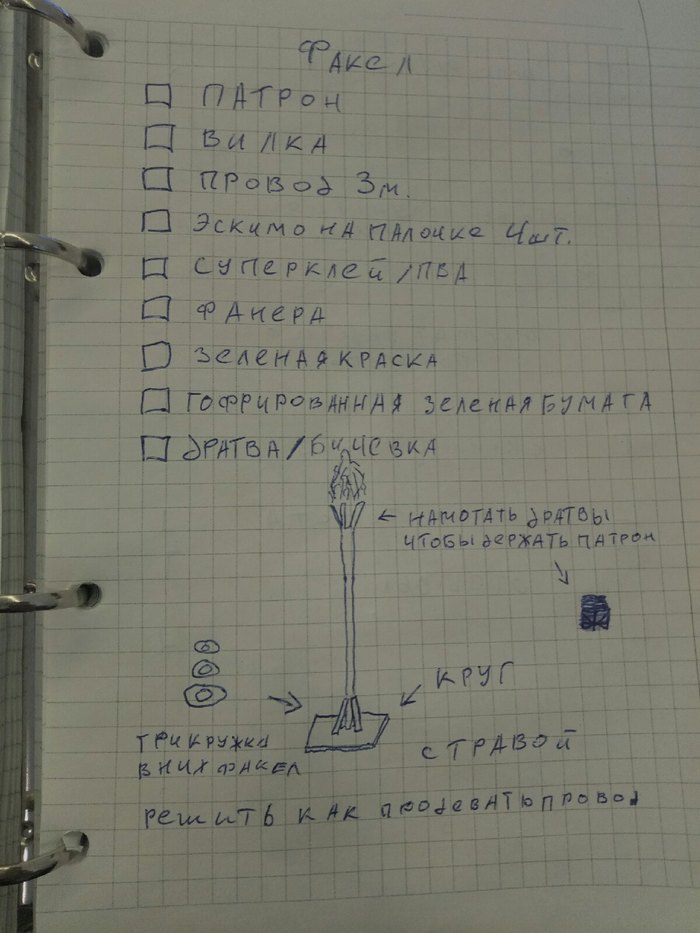 ФАКЕЛ
ПАТРОН
ВИЛКА
ПРОВОД 3м.
ЭСКИМО НА ПАЛОЧКЕ 4шт.
СУПЕРКЛЕЙ/ПВА
ФАНЕРА
ЗЕЛЕНАЯ КРАСКА
ГОФРИРОВАННАЯ ЗЕЛЕНАЯ БУМАГА
ДРАТВА/БИЧЕВКА
НАМОТАТЬ ДРАТВЫ
ЧТОБЫ ДЕРЖАТЬ ПАТРОН
КРУГ
С ТРАВОЙ
ТРИ КРУЖКА
В НИХ ФАКЕЛ
РЕШИТЬ КАК ПРОДЕВАТЬ ПРОВОД